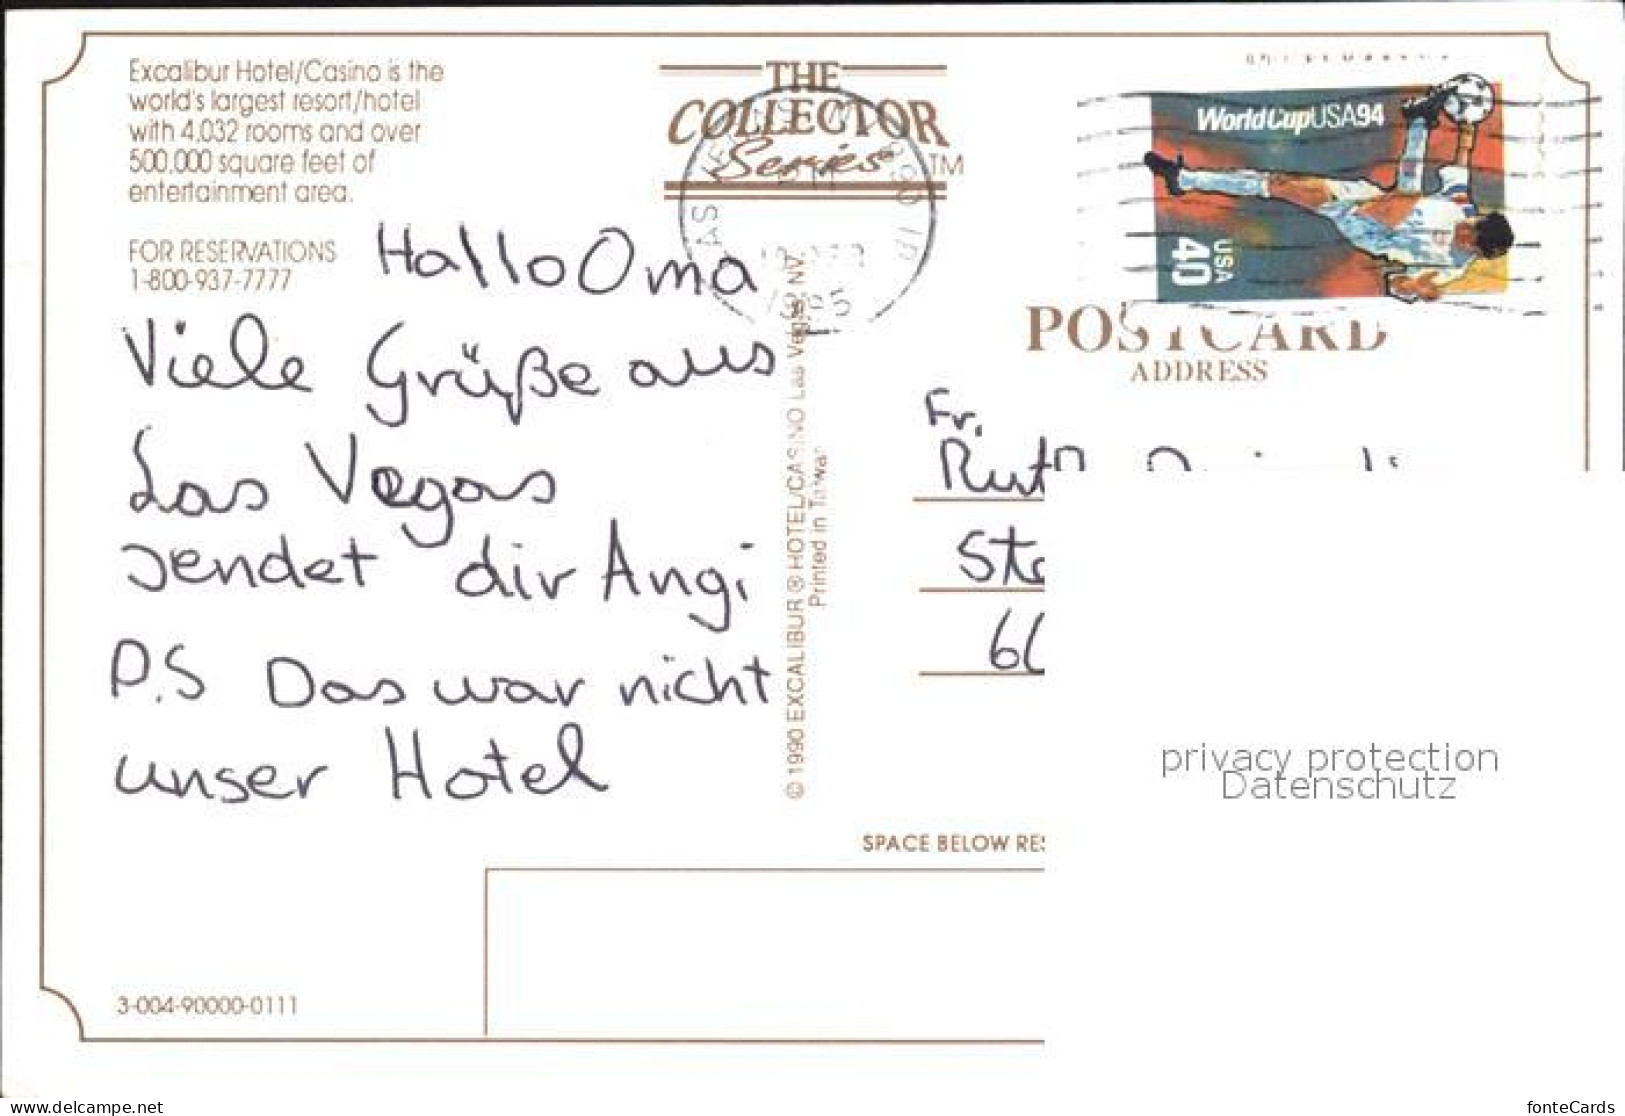 Excalibur Hotel/Casino is the
world's largest resort/hotel
with 4,032 rooms and over
500,000 square feet of
entertainment area.
FOR RESERVATIONS
1-800-937-7777
THE
COLLECTOR
Series TM
Hallo Oma
Viele Grüße aus
Las Vegas
sendet dir Angi
P.S Das war nicht
unser Hotel
© 1990 EXCALIBUR ® HOTEL/CASINO Las Vegas, NV.
Printed in Taiwan
1995
World Cup USA 94
USA
40
POSTCARD
ADDRESS
Fr.
SPACE BELOW
privacy protection
Datenschutz
3-004-90000-0111
delcampe.net
fonteCards